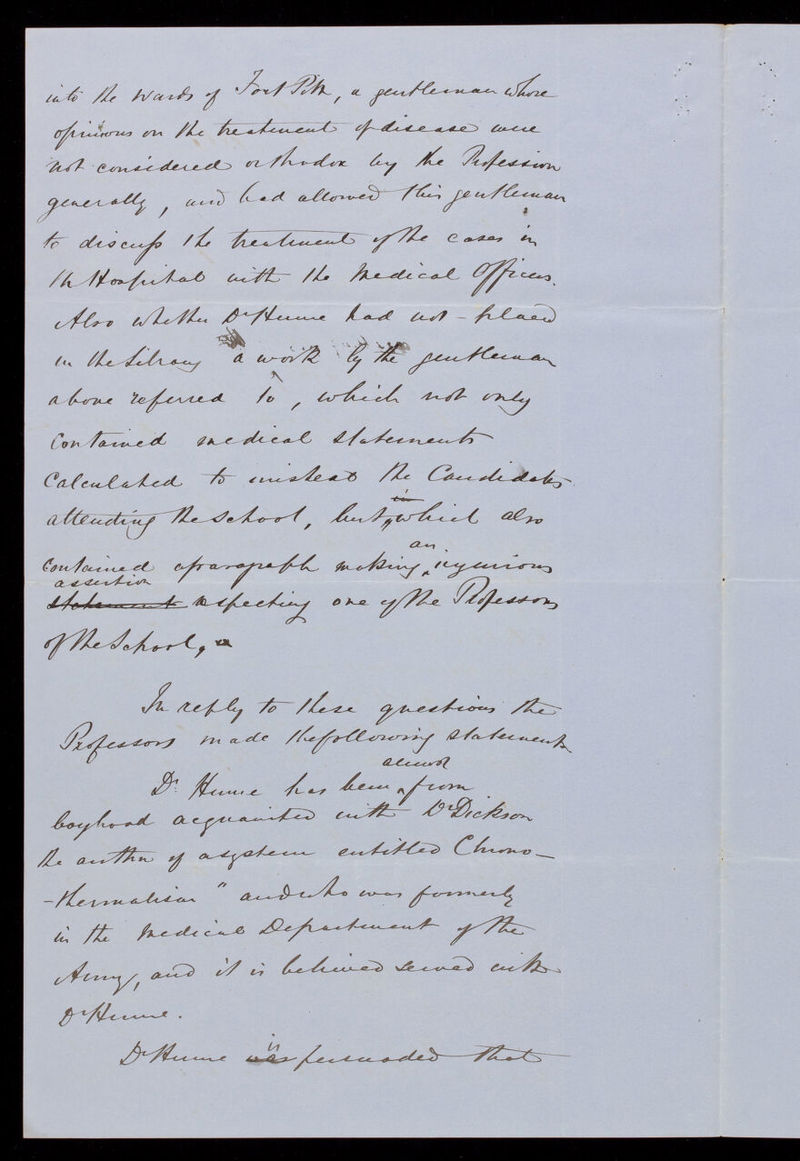 into the wards of Fort Pitt, a gentleman whose
opinions on the treatment of disease were
not considered orthodox by the Profession
generally, and had allowed this gentleman
to discuss the treatment of the cases in
the Hospital with the Medical Officers.
Also whether Dr Hume had not placed
in the Library a work by the gentleman
above referred to, which not only
contained medical statements
calculated to mislead the Candidates
attending the School, but in which also
contained a paragraph making an injurious
assertion
statement respecting one of the Professors
of the School,
In reply to these questions the
Professors made the following statements
Dr. Hume has been almost from
boyhood acquainted with Dr Dickson
the author of a system entitled Chrono-
-thermalism" and who was formerly
in the Medical Department of the
Army, and it is believed served with
Dr Hume.
Dr Hume was is persuaded that